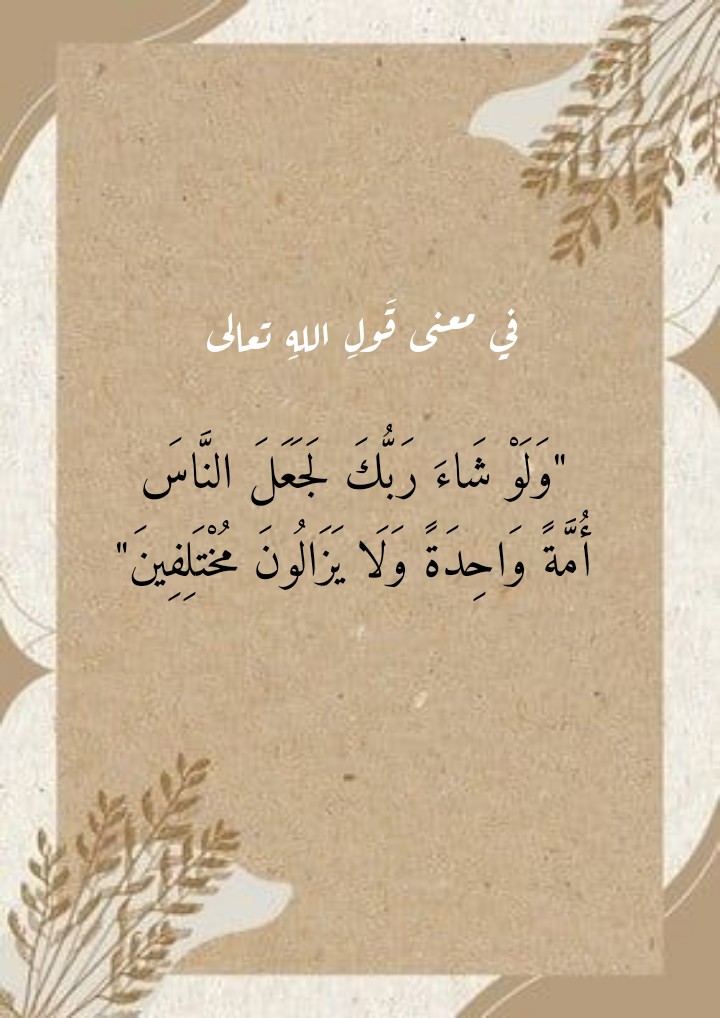 في معنى قَولِ اللهِ تعالى
"وَلَوْ شَاءَ رَبُّكَ لَجَعَلَ النَّاسَ
أُمَّةً وَاحِدَةً وَلَا يَزَالُونَ مُخْتَلِفِينَ"